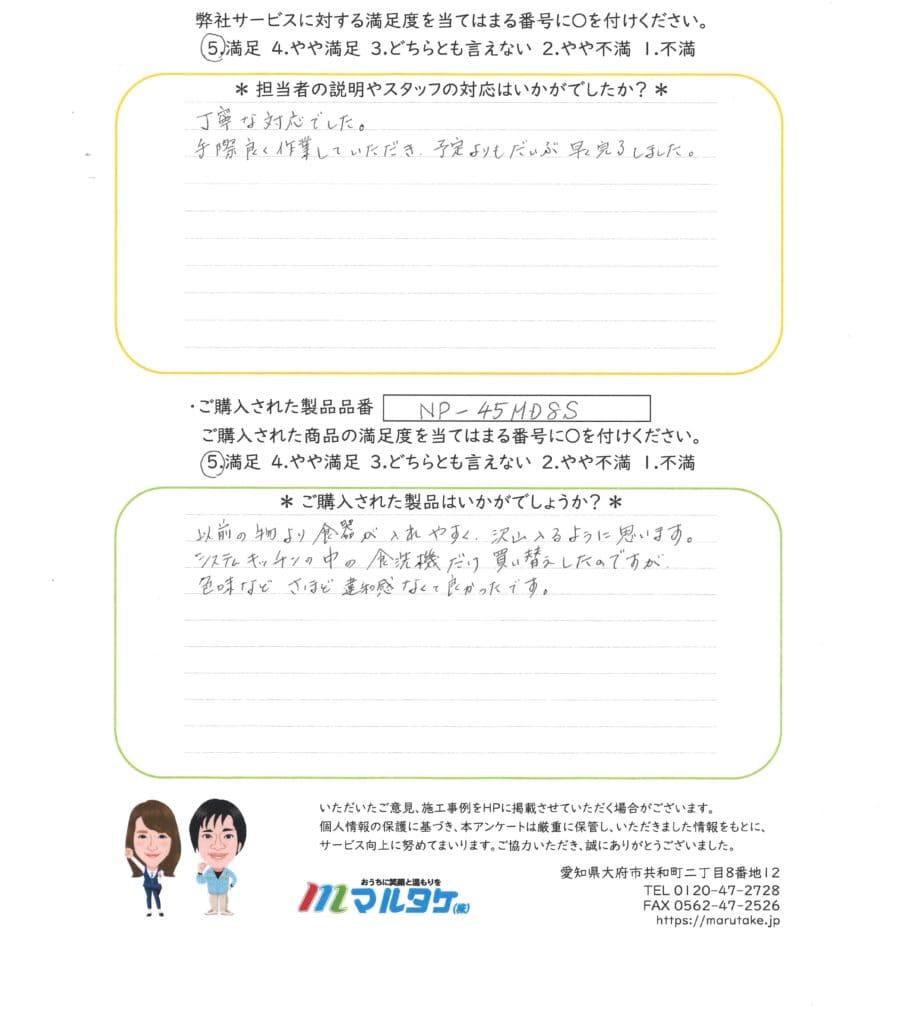 弊社サービスに対する満足度を当てはまる番号に○を付けください。
5.満足 4.やや満足 3.どちらとも言えない 2.やや不満 1.不満
＊ 担当者の説明やスタッフの対応はいかがでしたか？ ＊
丁寧な対応でした。
手際良く作業していただき、予定よりもだいぶ早く完了しました。
・ご購入された製品品番 NP-45MD8S
ご購入された商品の満足度を当てはまる番号に○を付けください。
5.満足 4.やや満足 3.どちらとも言えない 2.やや不満 1.不満
＊ ご購入された製品はいかがでしょうか？ ＊
以前の物より食器が入れやすく、沢山入るように思います。
システムキッチンの中の食洗機だけ買い替えしたのですが、
色味など さほど違和感なくて良かったです。
いただいたご意見、施工事例をHPに掲載させていただく場合がございます。
個人情報の保護に基づき、本アンケートは厳重に保管し、いただきました情報をもとに、
サービス向上に努めてまいります。ご協力いただき、誠にありがとうございました。
おうちに笑顔と温もりを
マルタケ(株)
愛知県大府市共和町二丁目8番地12
TEL 0120-47-2728
FAX 0562-47-2526
https://marutake.jp